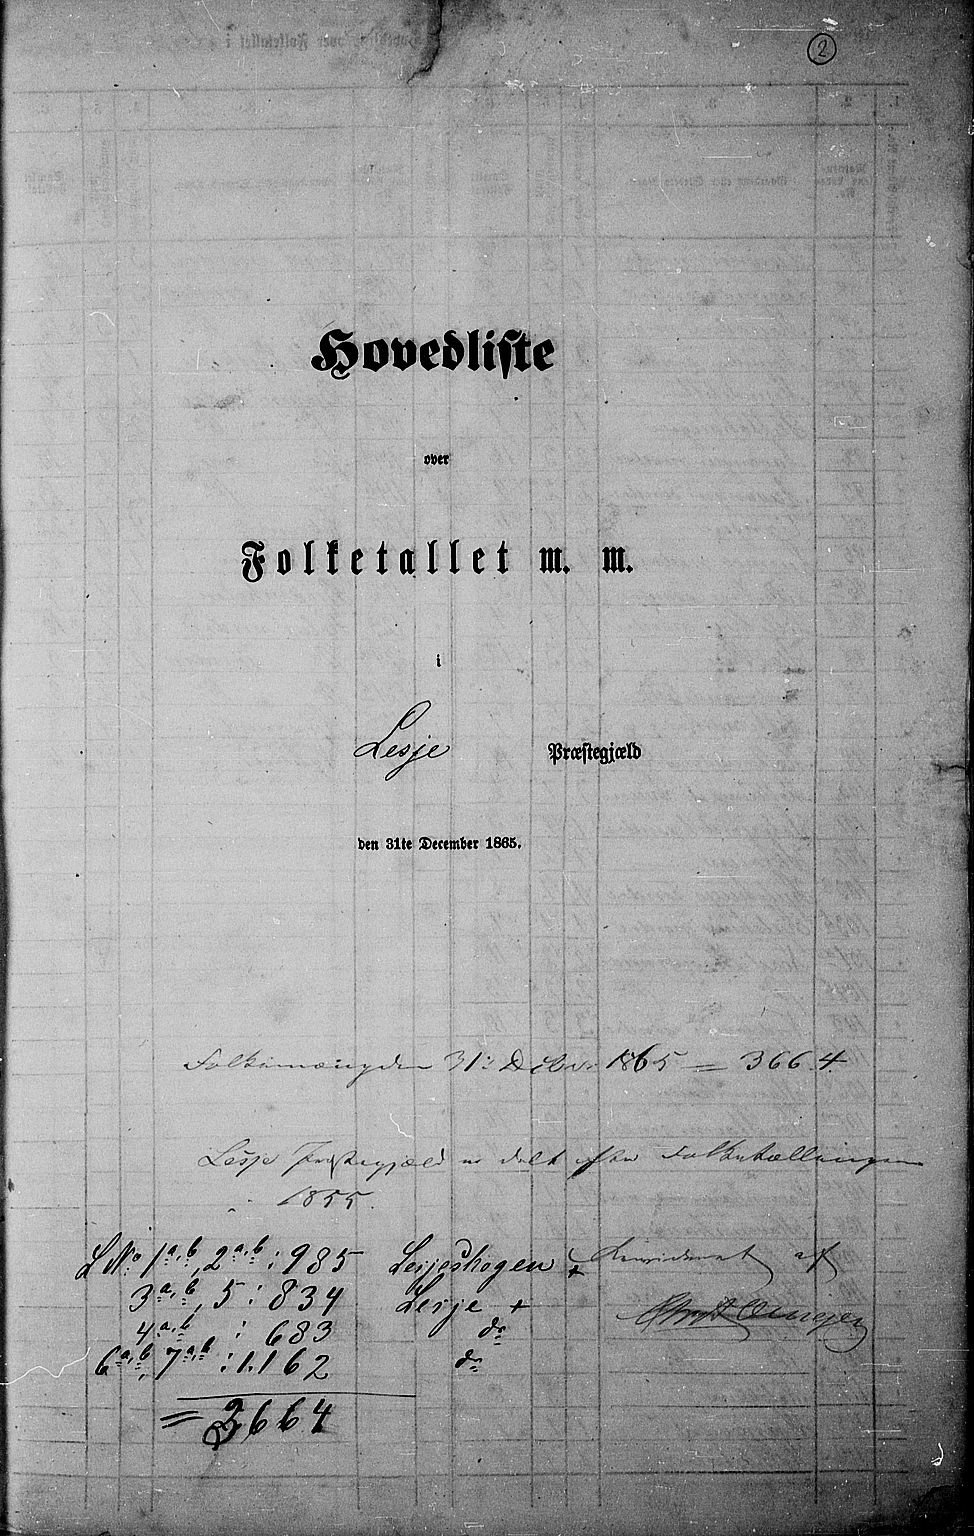 2
Hovedliste
over
Folketallet m. m.
i
Lesje Præstegjæld
den 31te December 1865.
Folkemængden 31: Decbr: 1865 = 3664.
Lesje Præstegjæld er delt efter Folketællingen
1855.
L No 1 a,b, 2 a,b : 985 Lesjeskogen +
3 a,b, 5 : 834 Lesje +
4 a,b : 683 do
6 a,b, 7 a,b : 1.162 do
= 3664
Revideret af